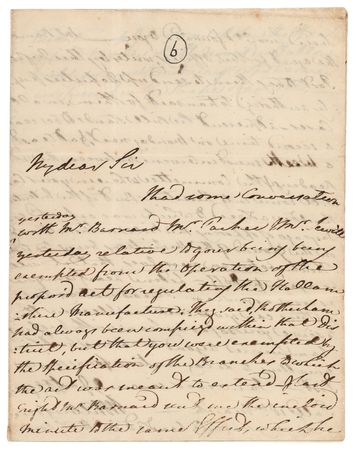 6
My dear Sir
I had some Conversation
yesterday
with Mr. Barnard Mr. Parker & Mr.
yesterday relative to your being being
exempted from the Operation of the
proposd act for regulating the Hallam
shire Manufacture. They said Rotherham
had always been comprized within that Dis
trict, but that you were exempted by
the Specification of the Branches to which
the act was meant to extend & last
night Mr. Barnard sent me the inclosd
Minute to the same Effect, which he